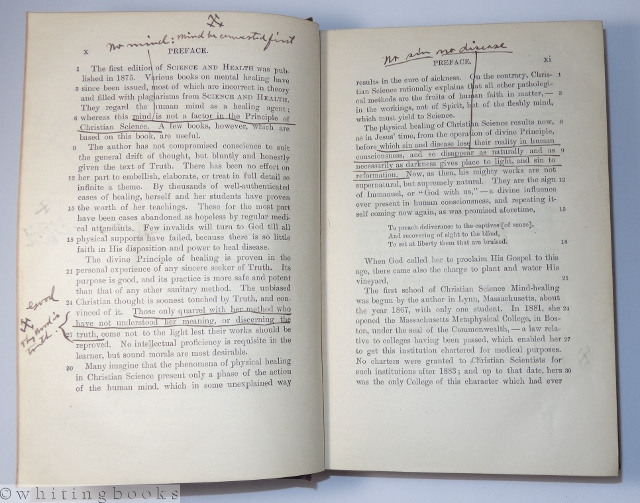 No mind: mind be converted first
x PREFACE.
The first edition of SCIENCE AND HEALTH was pub-
lished in 1875. Various books on mental healing have
3 since been issued, most of which are incorrect in theory
and filled with plagiarisms from SCIENCE AND HEALTH.
They regard the human mind as a healing agent;
6 whereas this mind is not a factor in the Principle of
Christian Science. A few books, however, which are
based on this book, are useful.
9 The author has not compromised conscience to suit
the general drift of thought, but bluntly and honestly
given the text of Truth. There has been no effort on
12 her part to embellish, elaborate, or treat in full detail so
infinite a theme. By thousands of well-authenticated
cases of healing, herself and her students have proven
15 the worth of her teachings. These for the most part
have been cases abandoned as hopeless by regular medi-
cal attendants. Few invalids will turn to God till all
18 physical supports have failed, because there is so little
faith in His disposition and power to heal disease.
The divine Principle of healing is proven in the
21 personal experience of any sincere seeker of Truth. Its
purpose is good, and its practice is more safe and potent
than that of any other sanitary method. The unbiased
24 Christian thought is soonest touched by Truth, and con-
vinced of it. Those only quarrel with her method who
have not understood her meaning, or discerning the
27 truth, come not to the light lest their works should be
reproved. No intellectual proficiency is requisite in the
learner, but sound morals are most desirable.
30 Many imagine that the phenomena of physical healing
in Christian Science present only a phase of the action
of the human mind, which in some unexplained way
Good
Thy word is
truth.
No sin no disease
PREFACE. xi
results in the cure of sickness. On the contrary, Chris- 1
tian Science rationally explains that all other pathologi-
cal methods are the fruits of human faith in matter, — 3
in the workings, not of Spirit, but of the fleshly mind,
which must yield to Science.
The physical healing of Christian Science results now, 6
as in Jesus' time, from the operation of divine Principle,
before which sin and disease lose their reality in human
consciousness, and so disappear as naturally and as 9
necessarily as darkness gives place to light, and sin to
reformation. Now, as then, his mighty works are not
supernatural, but supremely natural. They are the sign 12
of Immanuel, or “God with us,” — a divine influence
ever present in human consciousness, and repeating it-
self coming now again, as was promised aforetime, 15
To preach deliverance to the captives [of sense],
And recovering of sight to the blind,
To set at liberty them that are bruised. 18
When God called her to proclaim His Gospel to this
age, there came also the charge to plant and water His
vineyard. 21
The first school of Christian Science Mind-healing
was begun by the author in Lynn, Massachusetts, about
the year 1867, with only one student. In 1881, she 24
opened the Massachusetts Metaphysical College, in Bos-
ton, under the seal of the Commonwealth, — a law rela-
tive to colleges having been passed, which enabled her 27
to get this institution chartered for medical purposes.
No charters were granted to Christian Scientists for
such institutions after 1883; and up to that date, hers 30
was the only College of this character which had ever
©whitingbooks